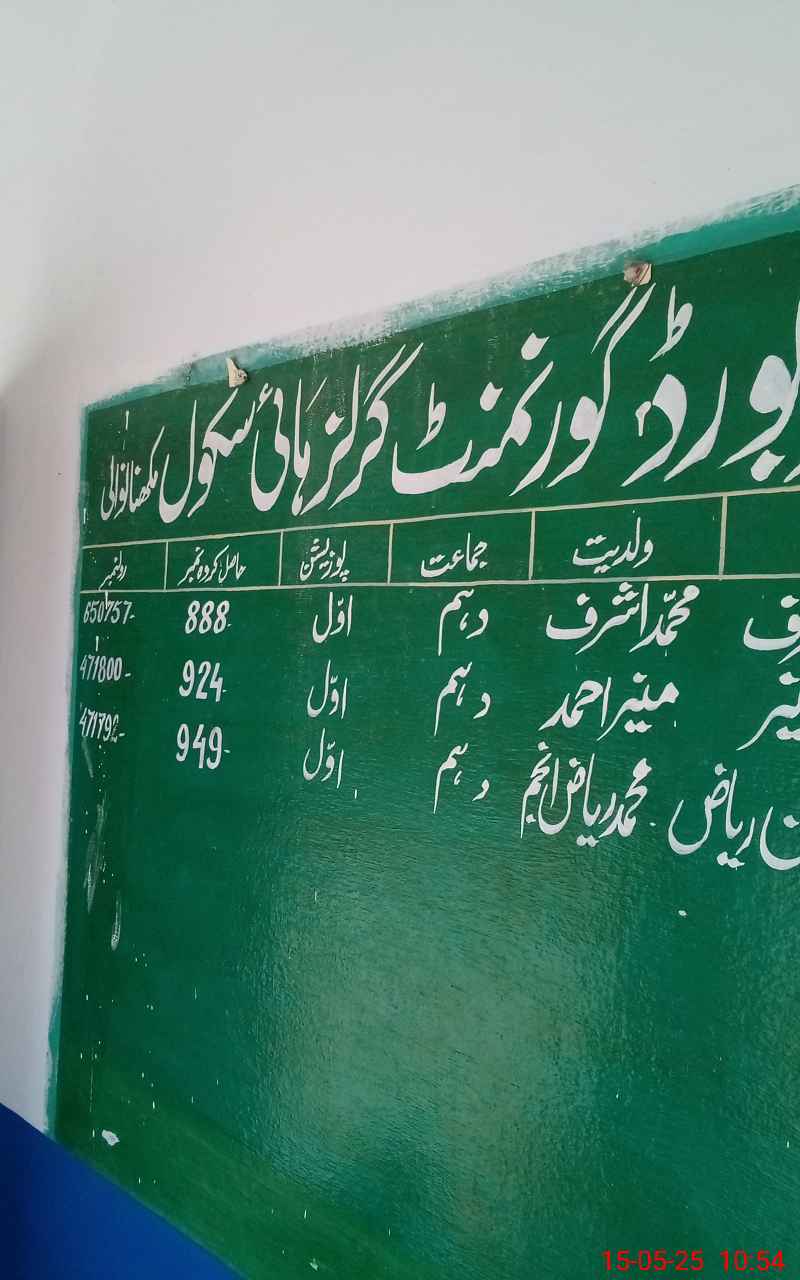 بورڈ گورنمنٹ گرلز ہائی سکول مکھنانوالی
ولدیت جماعت پوزیشن حاصل کردہ نمبر رولنمبر
محمّد اشرف دہم اوّل 888- 650757-
منیر احمد دہم اوّل 924- 471800-
ریاض محمد ریاض انجم دہم اوّل 949- 471792-
15-05-25 10:54